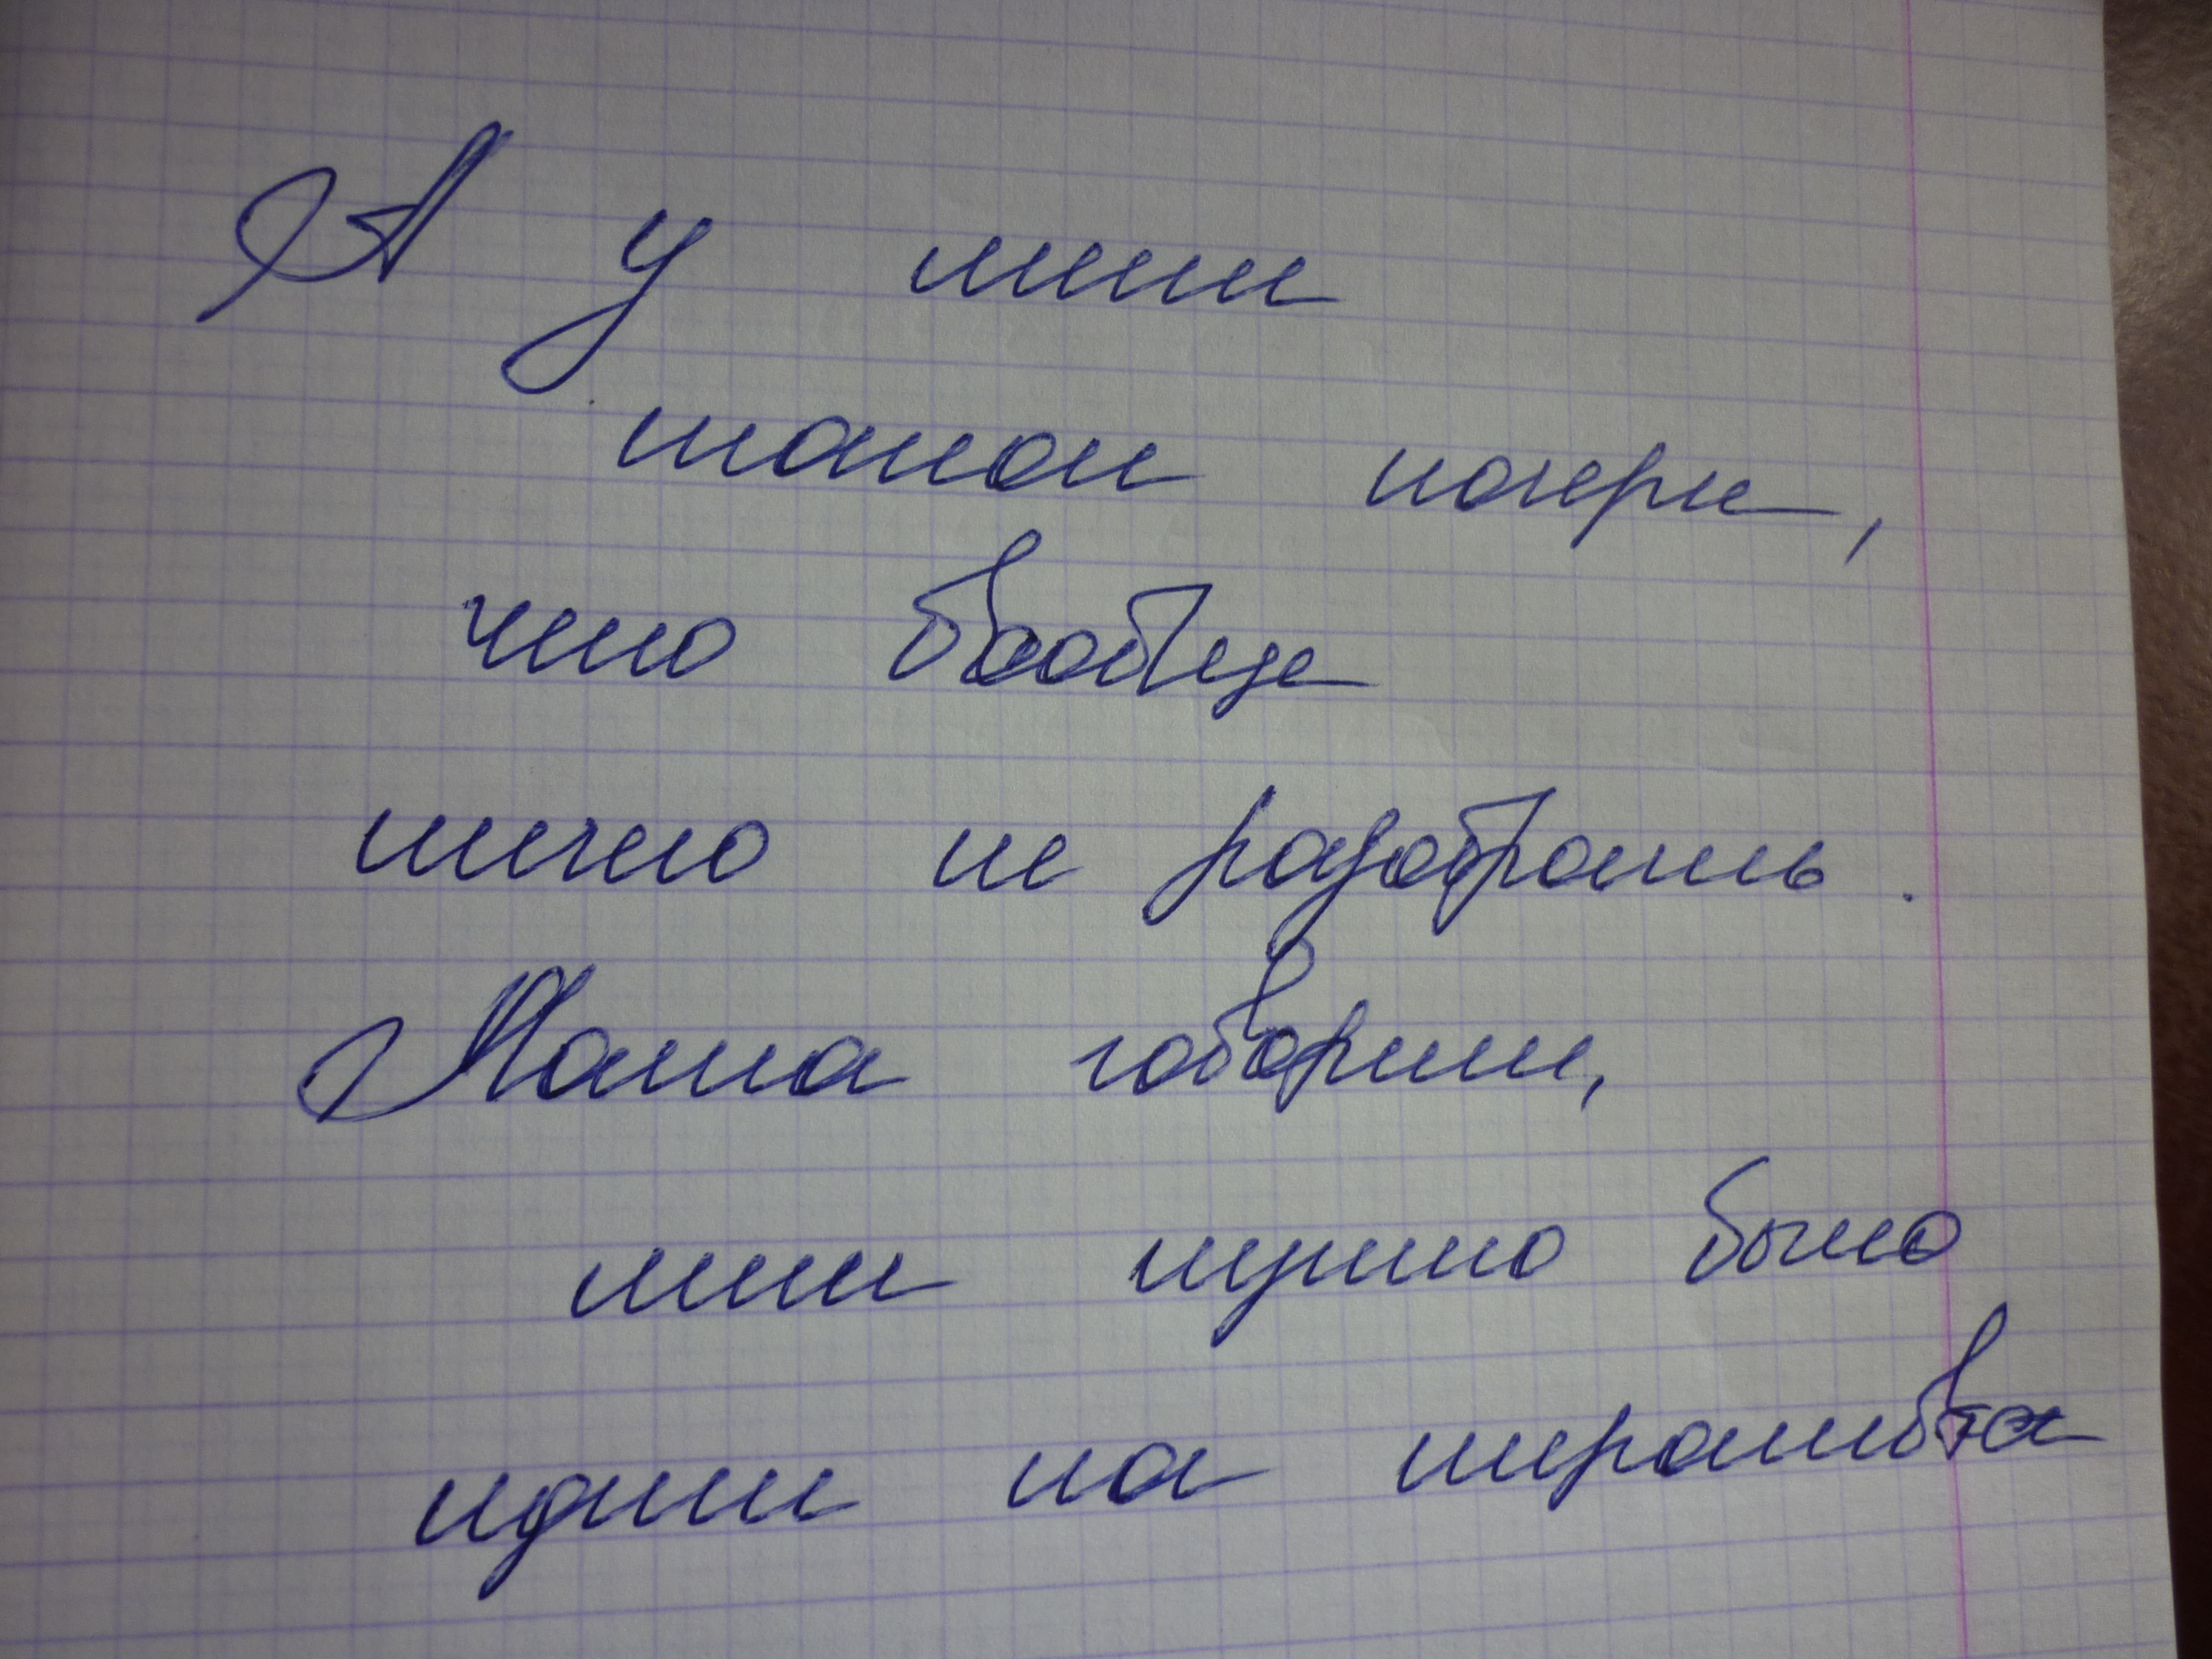 А у меня
такой почерк,
что вообще
ничего не разобрать.
Мама говорит,
мне нужно было
идти на терапевта